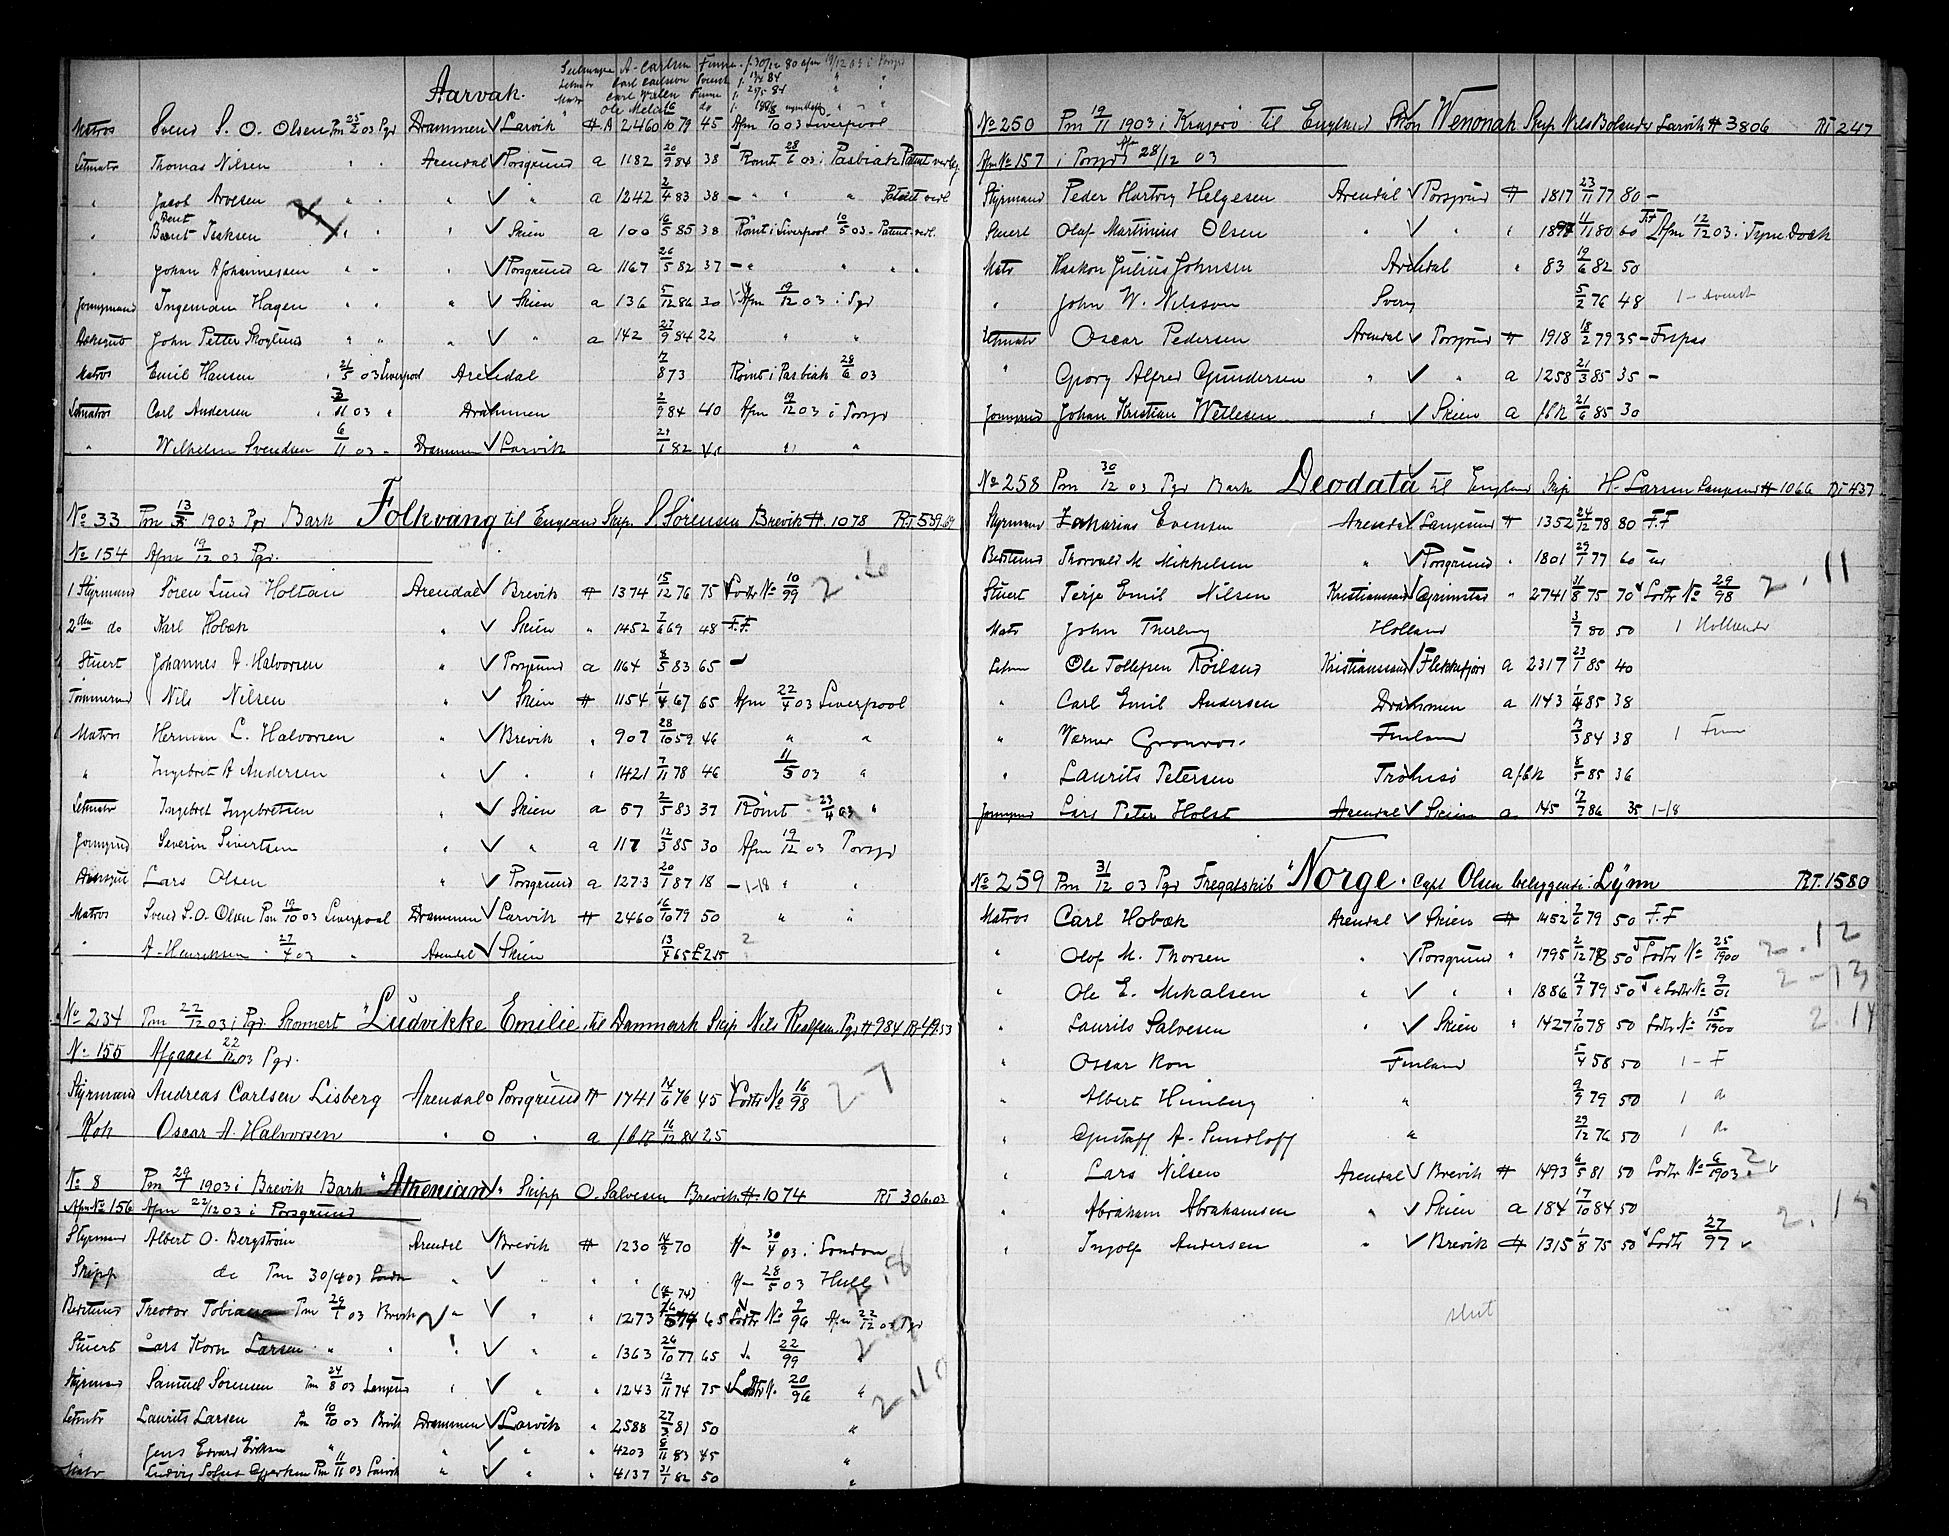 Aarvak.
Matros Svend S. O. Olsen Pm 25/2 03 Pgr Drammen Larvik # A 2460 16/10 79 45 Afm /10 03 Liverpool
Letmatr Thomas Nilsen " " Arendal Porsgrund a 1182 20/9 84 38 Römt 28/6 03 i Pasbiak Patent verl
" Jacob " " " a 1242 2/4 83 38 - " " " Patent verl
" Bernt Isaksen " " Skien a 100 16/5 85 38 Römt i Liverpool 10/5 03 - Patent verl.
" Johan A Johannessen " " " Porsgrund a 1167 26/5 82 37 - " " " "
Jonnmand Ingeman Hagen " " " Skien a 136 5/12 86 30 Afm 19/12 03 i Pgr
John Petter Skoglund " " " " a 142 27/9 84 22 " "
Matros Emil Hansen " 21/5 03 Liverpool Arendal 873 Römt i Pasbiak 28/6 03
Letmatros Carl Andersen " /11 03 " Drammen 2/9 84 40 Afm 19/12 03 i Porsgr
" Wilhelm Svendsen 6/11 03 " Drammen Larvik 82 " "
No 33 Pm 13/3 1903 Pgr Bark Folkvang til England Skip. S. Sörensen Brevik # 1078 RT 539
No 154 Afm 19/12 03 Pgr.
1 Styrmand Sören Lund Holtan Arendal Brevik # 1374 15/12 76 75 Lodtr No 10/99 2.6
2den do Karl Hobæk " Skien " 1452 7/6 69 48 F.F.
Stuert Johannes A. Halvorsen " Porsgrund a 1164 8/5 83 65 -
Tömmermd Nils Nilsen " Skien # 1154 1/4 67 65 Afm 22/4 03 Liverpool
Matros Herman L. Halvorsen " Brevik " 907 28/10 59 46 " "
" Ingebret A Andersen " " " 1421 7/11 78 46 11/5 03 "
Letmatr Ingebret Ingebretsen " Skien a 57 2/5 83 37 Römt 23/4 03 "
Jonnmand Severin Sivertsen " " a 117 12/3 85 30 Afm 19/12 03 Porsgr
Lars Olsen " Porsgrund a 1273 20/1 87 18 - 1-18 " "
Matros Svend S. O. Olsen Pm 19/10 03 Liverpool Drammen Larvik # 2460 16/10 79 50 " "
" A. Henriksen " 27/4 03 " Arendal Skien 13/4 65 ?
No 234 Pm 22/12 03 i Pgr. Skonnert "Ludvikke Emilie" til Danmark Skip Nils Realfsen Pgr # 984 RT 49.53
No 155 Afgaaet 22/12 03 Pgr.
Styrmand Andreas Carlsen Lisberg Arendal o Porsgrund # 1741 14/6 76 45 Lodtr No 16/98 2.7
Kok Oscar A. Halvorsen " o " a fbk 16/12 84 25
No 8 Pm 29/1 1903 i Brevik Bark "Athenian" Skipp O. Salvesen Brevik # 1074 RT 306.03
Afm No 156 Afm 22/12 03 i Porsgrund
Styrmand Albert O. Bergström Arendal Brevik # 1230 70 30/4 03 i London
Skipp do Pm 30/4 03 London " " " " 28/5 03 Hull 2.8
Bestmand Treodor Tobiasen Pm 29/1 03 Brevik " " " 1273 (74) 65 Lodtr No 9/96 Afm 22/12 03 Pgr
Stuert Lars Korn Larsen " " " " 1363 26/10 77 65 do 22/99 2.9
Styrmand Samuel Sörensen Pm 24/8 03 Langesund " " " 1243 12/11 74 75 Lodtr No. 20/96 " 2.10
Letmatr Laurits Larsen Pm 10/10 03 Brevik Drammen Larvik " 2588 27/3 81 50 "
" Jens Edvard Eriksen " " " " 4203 8/11 83 45 "
Matr Ludvig Sofus Pm 11/11 03 Larvik " " " 4137 31/1 82 50 "
No 250 Pm 19/11 1903 i Kragerö til England Skon Wenonah Skip Nils Bolander Larvik # 3806 RT 247
Afm No 157 i Porsgr 28/12 03
Styrmand Peder Hartvig Helgesen Arendal Porsgrund # 1817 23/11 77 80 -
Stuert Olaf Martinius Olsen " " " 11/11 80 60 Afm 12/12 03 i Tyne Dock
Matr Haakon Julius Johnsen Arendal " 83 19/6 82 50
" John W. Nilsson Sverg 5/2 76 48 1 - svensk
Letmatr Oscar Pedersen Arendal Porsgrund # 1918 18/2 79 35 - Fripas
" Georg Alfred Gundersen " " a 1258 21/3 85 35 -
Jonnmand Johan Kristian Wetlesen " Skien a fbk 21/6 85 30
No 258 Pm 30/12 03 Pgr Bark Deodata til England Skip H. Larsen Langesund # 1066 RT 437
Styrmand Zakarias Evensen Arendal Langesund # 1352 24/12 78 80 F.F
Bestmand Thorvald M Mikkelsen " Porsgrund " 1801 29/7 77 60
Stuert Terje Emil Nilsen Kristiansand Grimstad " 2741 31/8 75 70 Lodtr No 29/98 2.11
Matr John Holland 3/7 80 50 1 Hollænder
Letm Ole Tollefsen Röiland Kristiansand Flekkefjord a 2317 23/1 85 40
" Carl Emil Andersen Drammen a 1143 1/4 85 38
" Verner Finland 13/3 84 38 1 Finn
" Laurits Petersen Tromsö a fbk 8/5 85 36
Jonnmand Lars Peter Holst Arendal Skien a 145 17/7 86 35 1-18
No 259 Pm 31/12 03 Pgr Fregatskib "Norge". Capt Olsen beliggende i Lynn RT. 1580
Matros Carl Hobæk Arendal Skien # 1452 7/6 79 50 F.F
" Olof M. Thorsen " Porsgrund " 1795 2/12 78 50 Lodtr No 25/1900 2.12
" Ole E. Mikalsen " " " 1886 17/7 79 50 " Lodtr No 9/01 2-13
" Laurits Salvesen " Skien " 1427 7/10 78 50 Lodtr No 15/1900 2.14
" Oscar Ron Finland 5/4 58 50 1 - F
" Albert Himberg " 9/9 79 50 1 do
" Gustaff A. Sundloff " 29/12 76 50 1 do
" Lars Nilsen Arendal Brevik # 1493 6/5 81 50 Lodtr No 6/1903 2.
" Abraham Abrahamsen " Skien a 184 17/10 84 50 2.15
" Ingolf Andersen " Brevik # 1315 1/8 75 50 Lodtr 27/97
slut